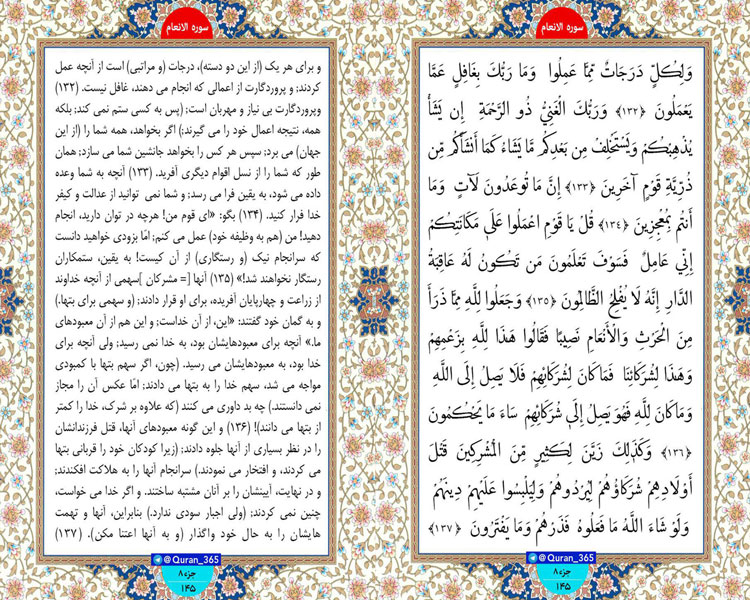 سوره الانعام
وَلِكُلٍّ دَرَجَاتٌ مِّمَّا عَمِلُوا وَمَا رَبُّكَ بِغَافِلٍ عَمَّا
يَعْمَلُونَ ﴿١٣٢﴾ وَرَبُّكَ الْغَنِيُّ ذُو الرَّحْمَةِ إِن يَشَأْ
يُذْهِبْكُمْ وَيَسْتَخْلِفْ مِن بَعْدِكُم مَّا يَشَاءُ كَمَا أَنشَأَكُم مِّن
ذُرِّيَّةِ قَوْمٍ آخَرِينَ ﴿١٣٣﴾ إِنَّ مَا تُوعَدُونَ لَآتٍ وَمَا
أَنتُم بِمُعْجِزِينَ ﴿١٣٤﴾ قُلْ يَا قَوْمِ اعْمَلُوا عَلَىٰ مَكَانَتِكُمْ
إِنِّي عَامِلٌ فَسَوْفَ تَعْلَمُونَ مَن تَكُونُ لَهُ عَاقِبَةُ
الدَّارِ إِنَّهُ لَا يُفْلِحُ الظَّالِمُونَ ﴿١٣٥﴾ وَجَعَلُوا لِلَّهِ مِمَّا ذَرَأَ
مِنَ الْحَرْثِ وَالْأَنْعَامِ نَصِيبًا فَقَالُوا هَٰذَا لِلَّهِ بِزَعْمِهِمْ
وَهَٰذَا لِشُرَكَائِنَا فَمَا كَانَ لِشُرَكَائِهِمْ فَلَا يَصِلُ إِلَى اللَّهِ
وَمَا كَانَ لِلَّهِ فَهُوَ يَصِلُ إِلَىٰ شُرَكَائِهِمْ سَاءَ مَا يَحْكُمُونَ
﴿١٣٦﴾ وَكَذَٰلِكَ زَيَّنَ لِكَثِيرٍ مِّنَ الْمُشْرِكِينَ قَتْلَ
أَوْلَادِهِمْ شُرَكَاؤُهُمْ لِيُرْدُوهُمْ وَلِيَلْبِسُوا عَلَيْهِمْ دِينَهُمْ
وَلَوْ شَاءَ اللَّهُ مَا فَعَلُوهُ فَذَرْهُمْ وَمَا يَفْتَرُونَ ﴿١٣٧﴾
@Quran_365
جزء ۸
۱۴۵
سوره الانعام
و برای هر یک (از این دو دسته)، درجات (و مراتبی) است از آنچه عمل
کردند؛ و پروردگارت از اعمالی که انجام می دهند، غافل نیست. (۱۳۲)
وپروردگارت بی نیاز و مهربان است؛ (پس به کسی ستم نمی کند؛ بلکه
همه، نتیجه اعمال خود را می گیرند؛) اگر بخواهد، همه شما را (از این
جهان) می برد؛ سپس هر کس را بخواهد جانشین شما می سازد؛ همان
طور که شما را از نسل اقوام دیگری آفرید. (۱۳۳) آنچه به شما وعده
داده می شود، به یقین فرا می رسد؛ و شما نمی توانید از عدالت و کیفر
خدا فرار کنید. (۱۳۴) بگو: «ای قوم من! هرچه در توان دارید، انجام
دهید! من (هم به وظیفه خود) عمل می کنم؛ امّا بزودی خواهید دانست
که سرانجام نیک (و رستگاری) از آن کیست! به یقین، ستمکاران
رستگار نخواهند شد!» (۱۳۵) آنها [= مشرکان ]سهمی از آنچه خداوند
از زراعت و چهارپایان آفریده، برای او قرار دادند؛ (و سهمی برای بتها.)
و به گمان خود گفتند: «این، از آن خداست؛ و این هم از آن معبودهای
ما.» آنچه برای معبودهایشان بود، به خدا نمی رسید؛ ولی آنچه برای
خدا بود، به معبودهایشان می رسید. (چون، اگر سهم بتها با کمبودی
مواجه می شد، سهم خدا را به بتها می دادند؛ امّا عکس آن را مجاز
نمی دانستند.) چه بد داوری می کنند (که علاوه بر شرک، خدا را کمتر
از بتها می دانند)! (۱۳۶) و این گونه معبودهای آنها، قتل فرزندانشان
را در نظر بسیاری از آنها جلوه دادند؛ (زیرا کودکان خود را قربانی بتها
می کردند، و افتخار می نمودند.) سرانجام آنها را به هلاکت افکندند؛
و در نهایت، آیینشان را بر آنان مشتبه ساختند. و اگر خدا می خواست،
چنین نمی کردند؛ (ولی اجبار سودی ندارد.) بنابراین، آنها و تهمت
هایشان را به حال خود واگذار (و به آنها اعتنا مکن). (۱۳۷)
@Quran_365
جزء ۸
۱۴۵